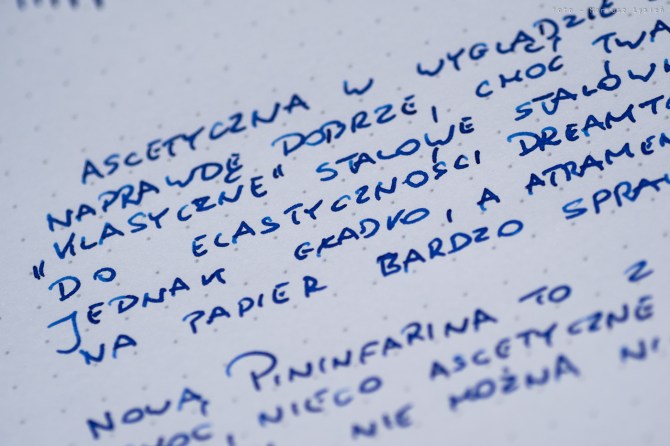 ASCETYCZNA W WYGLĄDZIE
NAPRAWDĘ DOBRZE I CHOĆ TWA
"KLASYCZNE" STALOWE STALÓW
DO ELASTYCZNOŚCI DREAMT
JEDNAK GŁADKO, A ATRAMEN
NA PAPIER BARDZO SPRAW
NOWĄ PININFARINA TO Z
NIECO ASCETYCZNE
NIE MOŻNA